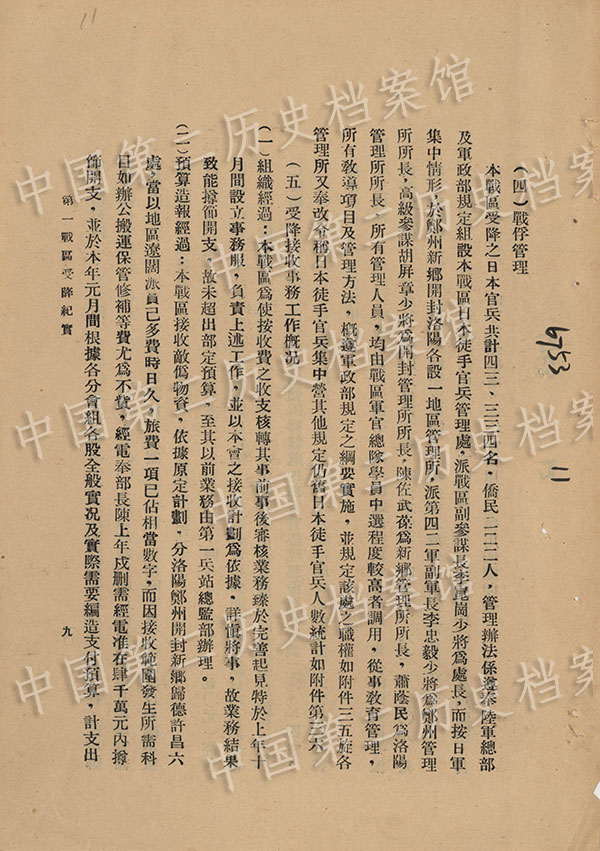 11
6753
11
（四）戰俘管理
本戰區受降之日本官兵共計四三、三三四名・僑民二二二二人，管理辦法係遵奉陸軍總部
及軍政部規定組設本戰區日本徒手官兵管理處，派戰區副參謀長李崑崗少將爲處長，而按日軍
集中情形，於鄭州新鄉開封洛陽各設一地區管理所，派第四二軍副軍長李忠毅少將爲鄭州管理
所所長，高級參謀胡屏章少將爲開封管理所所長，陳佐武葆爲新鄉管理所所長，蕭蔭民爲洛陽
管理所所長，所有管理人員，均由戰區軍官總隊學員中選程度較高者調用，從事教育管理，
所有教導項目及管理方法，概遵軍政部規定之綱要實施，並規定該處之職權如附件三五旋各
管理所又奉改令稱日本徒手官兵集中營其他規定仍舊日本徒手官兵人數統計如附件第三六
（五）受降接收事務工作概況
（一）組織經過：本戰區爲使接收費之收支核轉其事前事後審核業務臻於完善起見特於上年十
月間設立事務股，負責上述工作，並以本會之接收計劃爲依據，詳慎將事，故業務結果
致能撙節開支，故未超出部定預算，至其以前業務由第一兵站總監部辦理。
（二）預算造報經過：本戰區接收敵僞物資，依據原定計劃，分洛陽鄭州開封新鄉歸德許昌六
處，當以地區遼闊派員已多費時日久，旅費一項已佔相當數字，而因接收範圍發生所需科
目如辦公搬運保管修補等費尤爲不貲，經電奉部長陳上年戌刪需經電准在肆千萬元內撙
節開支，並於本年元月間根據各分會組各股全般實況及實際需要編造支付預算，計支出
第一戰區受降紀實
九
中国第二历史档案馆
中国第二历史档案馆
中国第二历史档案馆
中国第二历史档案馆